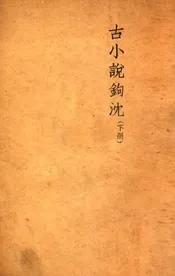 古小說鉤沈(下冊)